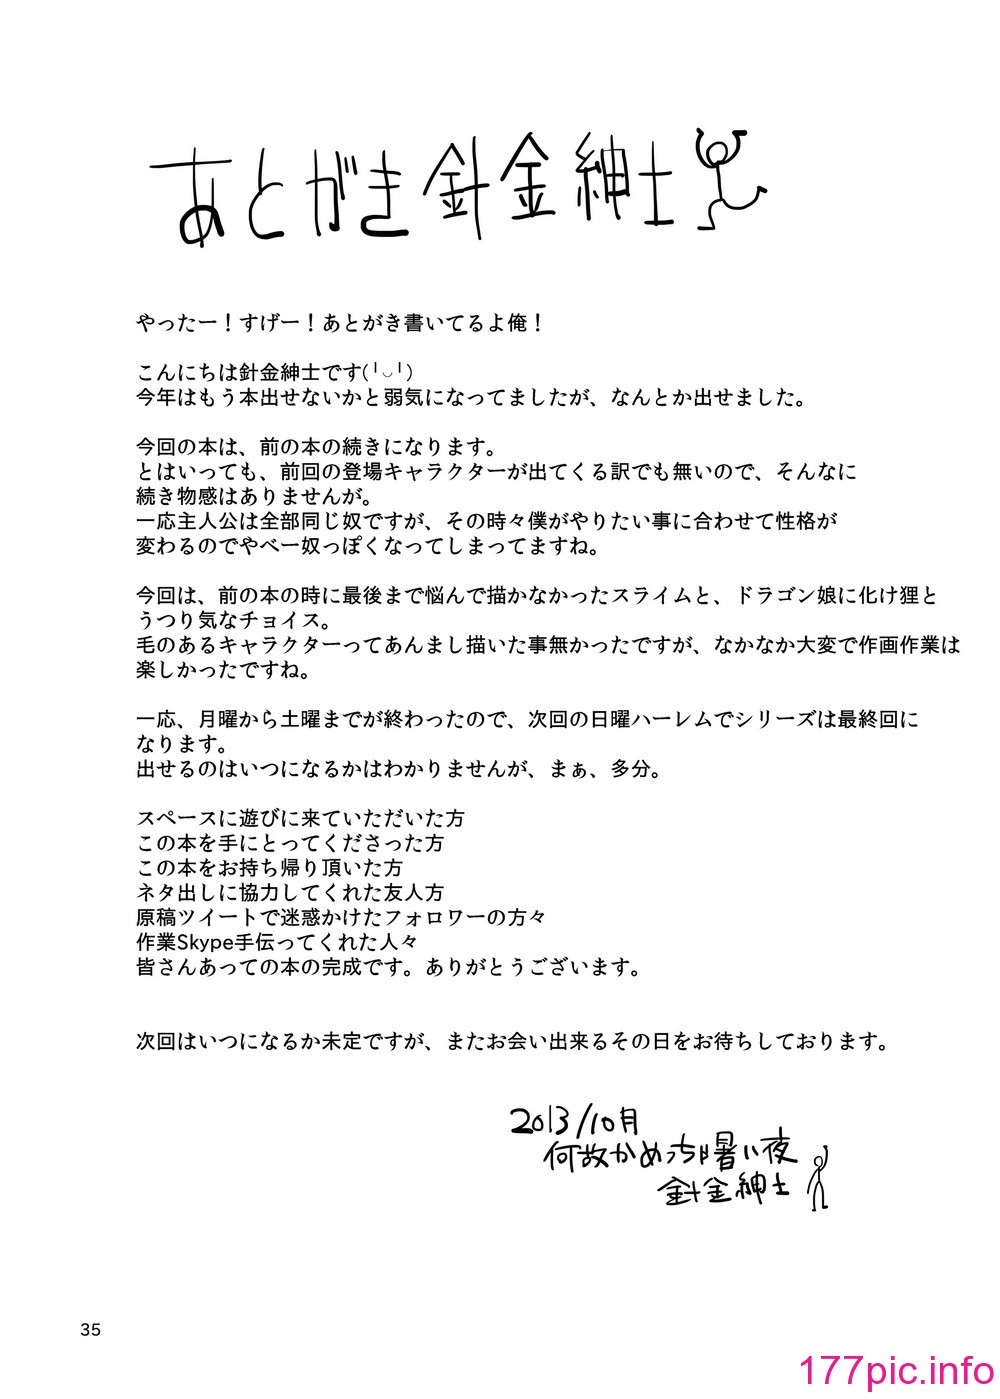 あとがき 針金紳士
やったー！すげー！あとがき書いてるよ俺！
こんにちは針金紳士です(╹◡╹)
今年はもう本出せないかと弱気になってましたが、なんとか出せました。
今回の本は、前の本の続きになります。
とはいっても、前回の登場キャラクターが出てくる訳でも無いので、そんなに
続き物感はありませんが。
一応主人公は全部同じ奴ですが、その時々僕がやりたい事に合わせて性格が
変わるのでやべー奴っぽくなってしまってますね。
今回は、前の本の時に最後まで悩んで描かなかったスライムと、ドラゴン娘に化け狸と
うつり気なチョイス。
毛のあるキャラクターってあんまし描いた事無かったですが、なかなか大変で作画作業は
楽しかったですね。
一応、月曜から土曜までが終わったので、次回の日曜ハーレムでシリーズは最終回に
なります。
出せるのはいつになるかはわかりませんが、まぁ、多分。
スペースに遊びに来ていただいた方
この本を手にとってくださった方
この本をお持ち帰り頂いた方
ネタ出しに協力してくれた友人方
原稿ツイートで迷惑かけたフォロワーの方々
作業Skype手伝ってくれた人々
皆さんあっての本の完成です。ありがとうございます。
次回はいつになるか未定ですが、またお会い出来るその日をお待ちしております。
2013/10月
何故かめっちゃ暑い夜
針金紳士
35
177pic.info